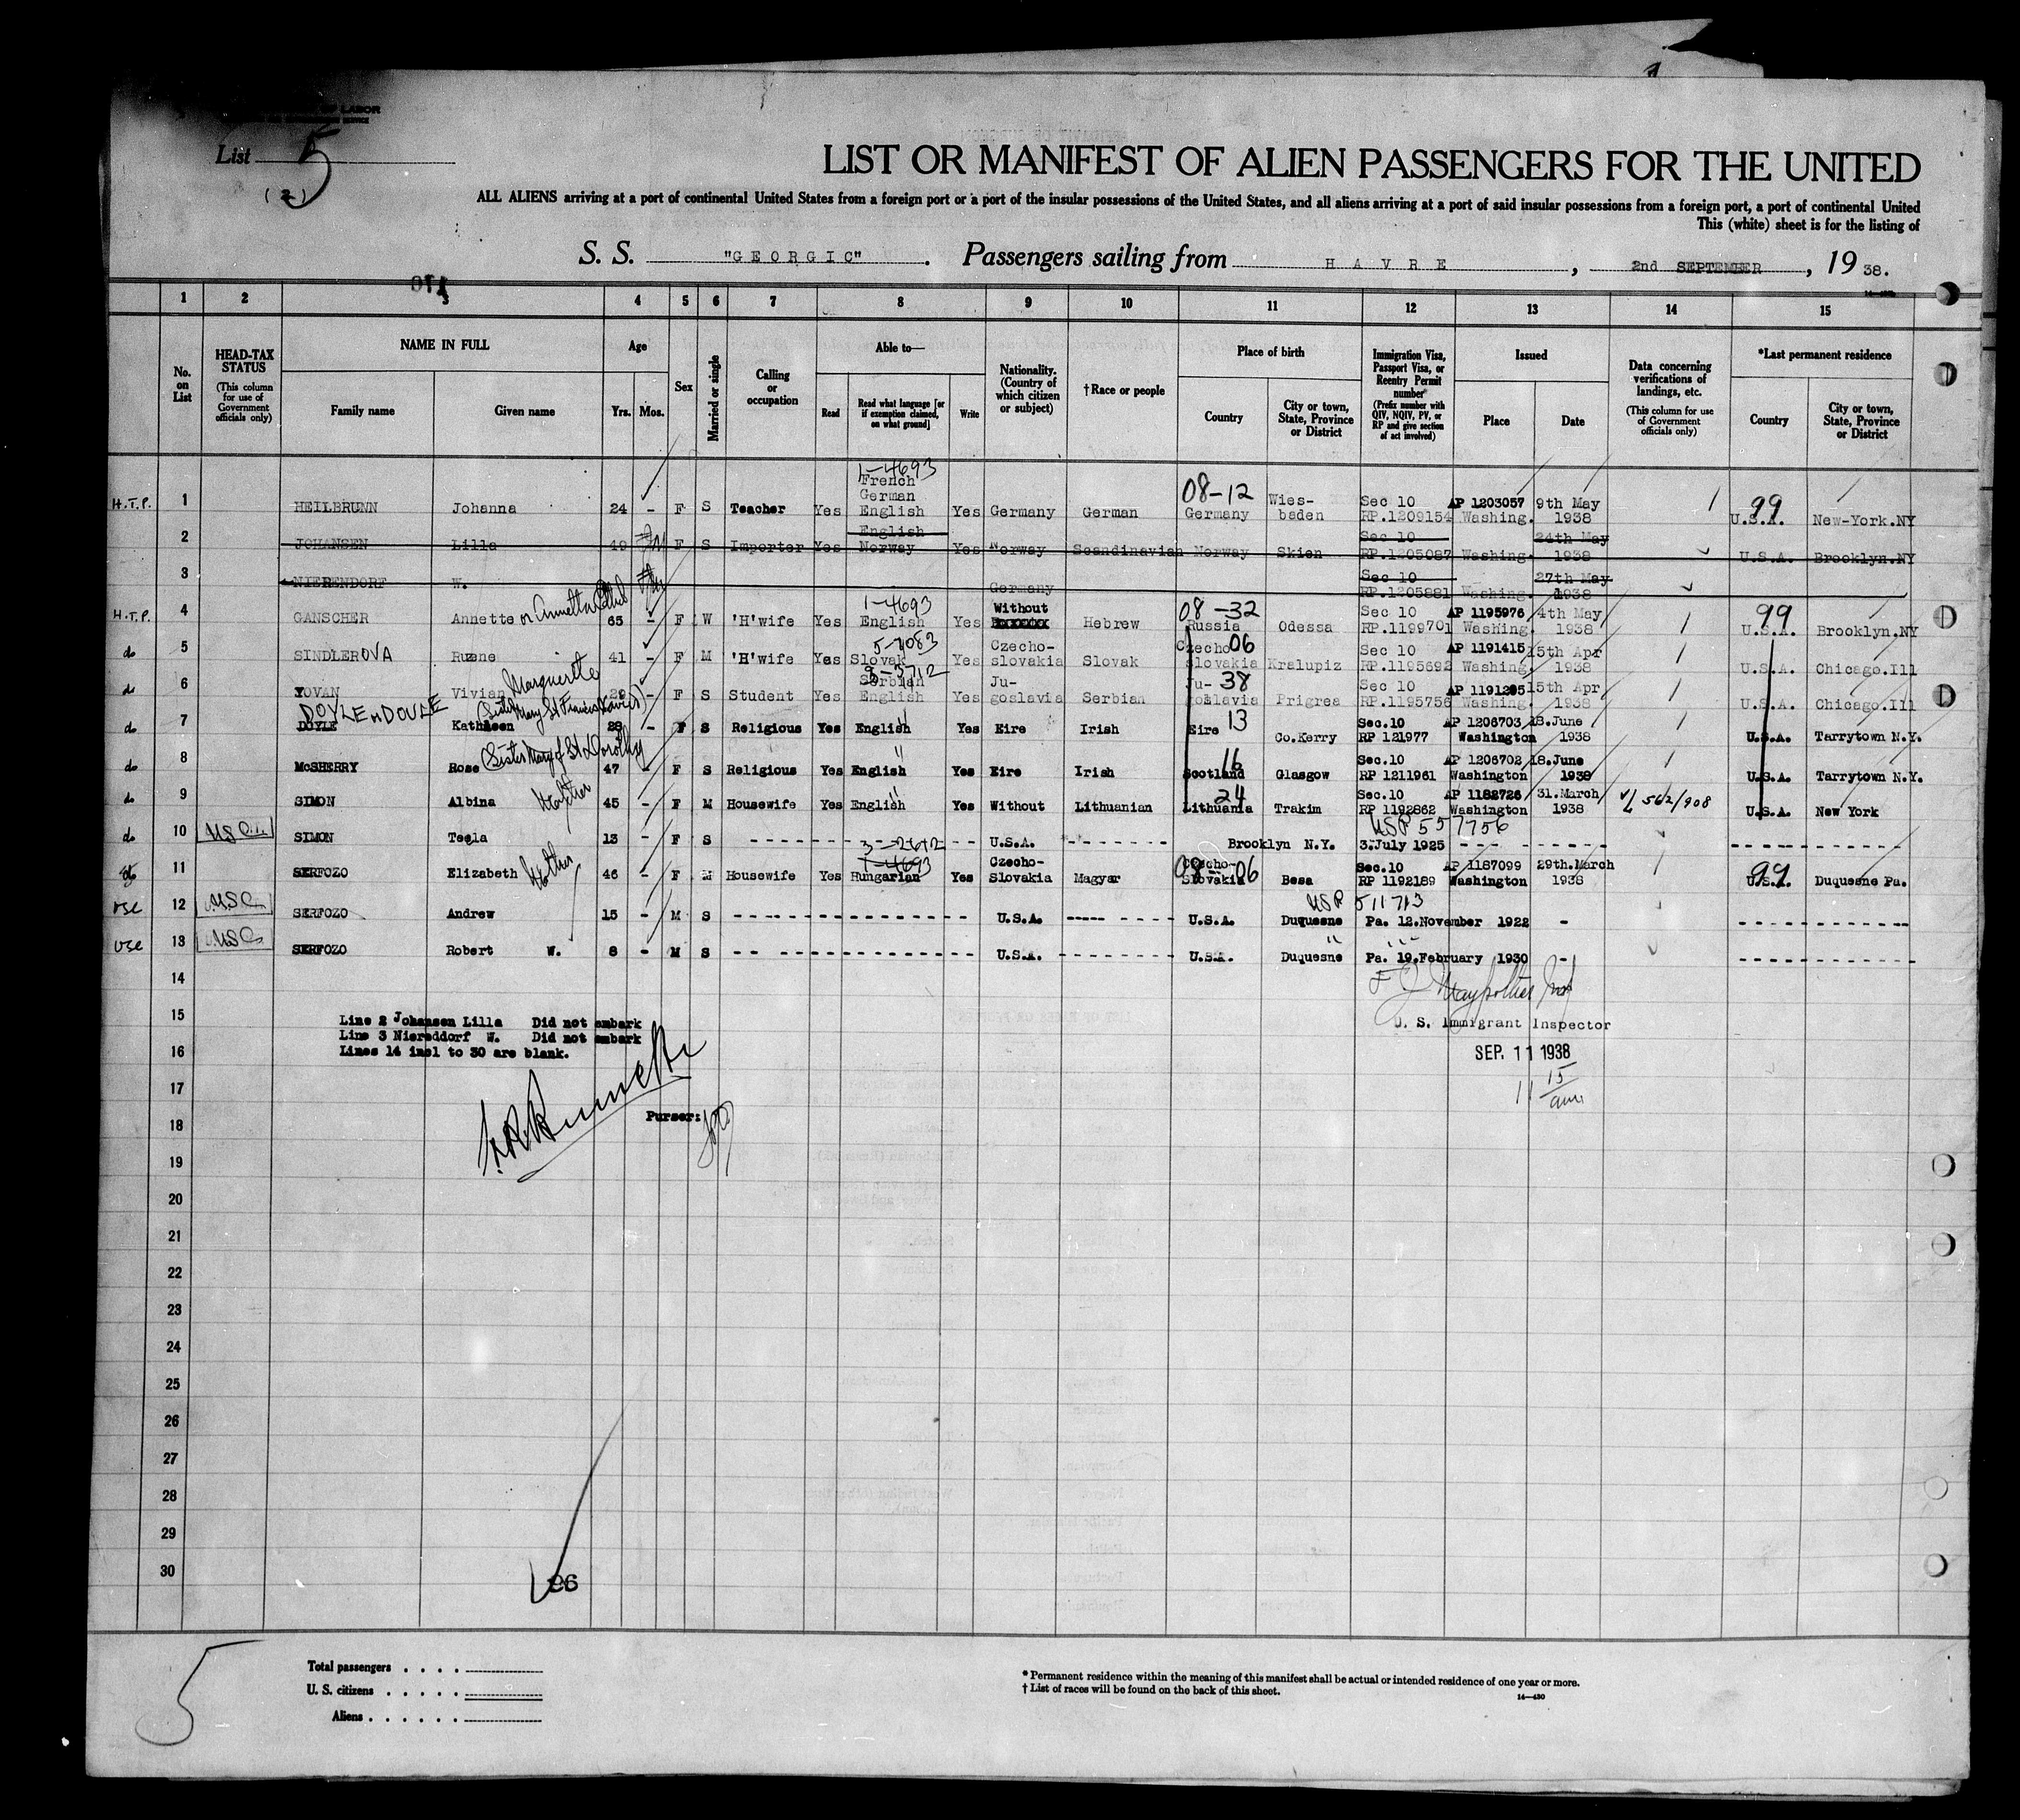 OF LABOR
List 5
(2)
LIST OR MANIFEST OF ALIEN PASSENGERS FOR THE UNITED
ALL ALIENS arriving at a port of continental United States from a foreign port or a port of the insular possessions of the United States, and all aliens arriving at a port of said insular possessions from a foreign port, a port of continental United
This (white) sheet is for the listing of
S. S. "GEORGIC". Passengers sailing from HAVRE, 2nd SEPTEMBER, 19 38.
1 2 3 4 5 6 7 8 9 10 11 12 13 14 15
No. on List
HEAD-TAX STATUS (This column for use of Government officials only)
NAME IN FULL
Family name Given name
Age
Yrs. Mos.
Sex
Married or single
Calling or occupation
Able to—
Read Read what language [or if exemption claimed, on what ground] Write
Nationality. (Country of which citizen or subject)
†Race or people
Place of birth
Country City or town, State, Province or District
Immigration Visa, Passport Visa, or Reentry Permit number (Prefix number with QIV, NQIV, PV, or RP and give section of act involved)
Issued
Place Date
Data concerning verifications of landings, etc. (This column for use of Government officials only)
*Last permanent residence
Country City or town, State, Province or District
H.T.P. 1 HEILBRUNN Johanna 24 - F S Teacher Yes 1-4693 French German English Yes Germany German 08-12 Germany Wies-baden Sec 10 RP.1209154 AP 1203057 Washing. 9th May 1938 99 U.S.A. New-York.NY
2 JOHANSEN Lilla 49 F S Importer Yes English Norway Yes Norway Scandinavian Norway Skien Sec 10 RP.1205087 Washing. 24th May 1938 U.S.A. Brooklyn.NY
3 NIERENDORF W. Germany Sec 10 RP.1205881 Washing. 27th May 1938
H.T.P. 4 GANSCHER Annette or Annetta 65 - F W 'H'wife Yes 1-4693 English Yes Without Hebrew 08-32 Russia Odessa Sec 10 RP.1199701 AP 1195976 Washing. 4th May 1938 99 U.S.A. Brooklyn.NY
do 5 SINDLEROVA Ruzene 41 - F M 'H'wife Yes 5-7083 Slovak Yes Czecho-slovakia Slovak 06 Czecho slovakia Kralupiz Sec 10 RP.1195692 AP 1191415 Washing. 15th Apr 1938 U.S.A. Chicago.Ill
do 6 YOVAN Vivian Marguerite 29 - F S Student Yes Serbian English Yes Ju-goslavia Serbian 38 Ju-goslavia Prigrea Sec 10 RP.1195756 AP 1191295 Washing. 15th Apr 1938 U.S.A. Chicago.Ill
DOYLE or DOULE
do 7 DOYLE Kathleen (Sister Mary St Francis Xavier) 28 - F S Religious Yes English Yes Eire Irish 13 Eire Co.Kerry Sec.10 RP 121977 AP 1206703 Washington 18.June 1938 U.S.A. Tarrytown N.Y.
do 8 McSHERRY Rose (Sister Mary of St Dorothy 47 - F S Religious Yes English Yes Eire Irish 16 Scotland Glasgow Sec.10 RP 1211961 AP 1206702 Washington 18.June 1938 U.S.A. Tarrytown N.Y.
do 9 SIMON Albina Mother 45 - F M Housewife Yes English Yes Without Lithuanian 24 Lithuania Trakim Sec.10 RP 1192862 AP 1182726 Washington 31.March 1938 562/908 U.S.A. New York
do 10 USC SIMON Tecla 13 - F S U.S.A. Brooklyn N.Y. USP 557756 3.July 1925
do 11 SERFOZO Elizabeth Mother 46 - F M Housewife Yes 3-2612 1-4693 Hungarian Yes Czecho-Slovakia Magyar 08-06 Czecho-Slovakia Besa Sec.10 RP 1192189 AP 1187099 Washington 29th.March 1938 99 U.S.A. Duquesne Pa.
usc 12 USC SERFOZO Andrew 15 - M S U.S.A. U.S.A. Duquesne USP 511713 Pa. 12.November 1922 -
usc 13 USC SERFOZO Robert W. 8 - M S U.S.A. U.S.A. Duquesne " Pa. 19.February 1930 -
14
15
16
17
18
19
20
21
22
23
24
25
26
27
28
29
30
Line 2 Johansen Lilla Did not embark
Line 3 Niereddorf W. Did not embark
Lines 14 incl to 30 are blank.
Purser:
U. S. Immigrant Inspector
SEP. 11 1938
11 15/am
96
5
Total passengers . . . .
U. S. citizens . . . . .
Aliens . . . . . .
* Permanent residence within the meaning of this manifest shall be actual or intended residence of one year or more.
† List of races will be found on the back of this sheet.
14—430